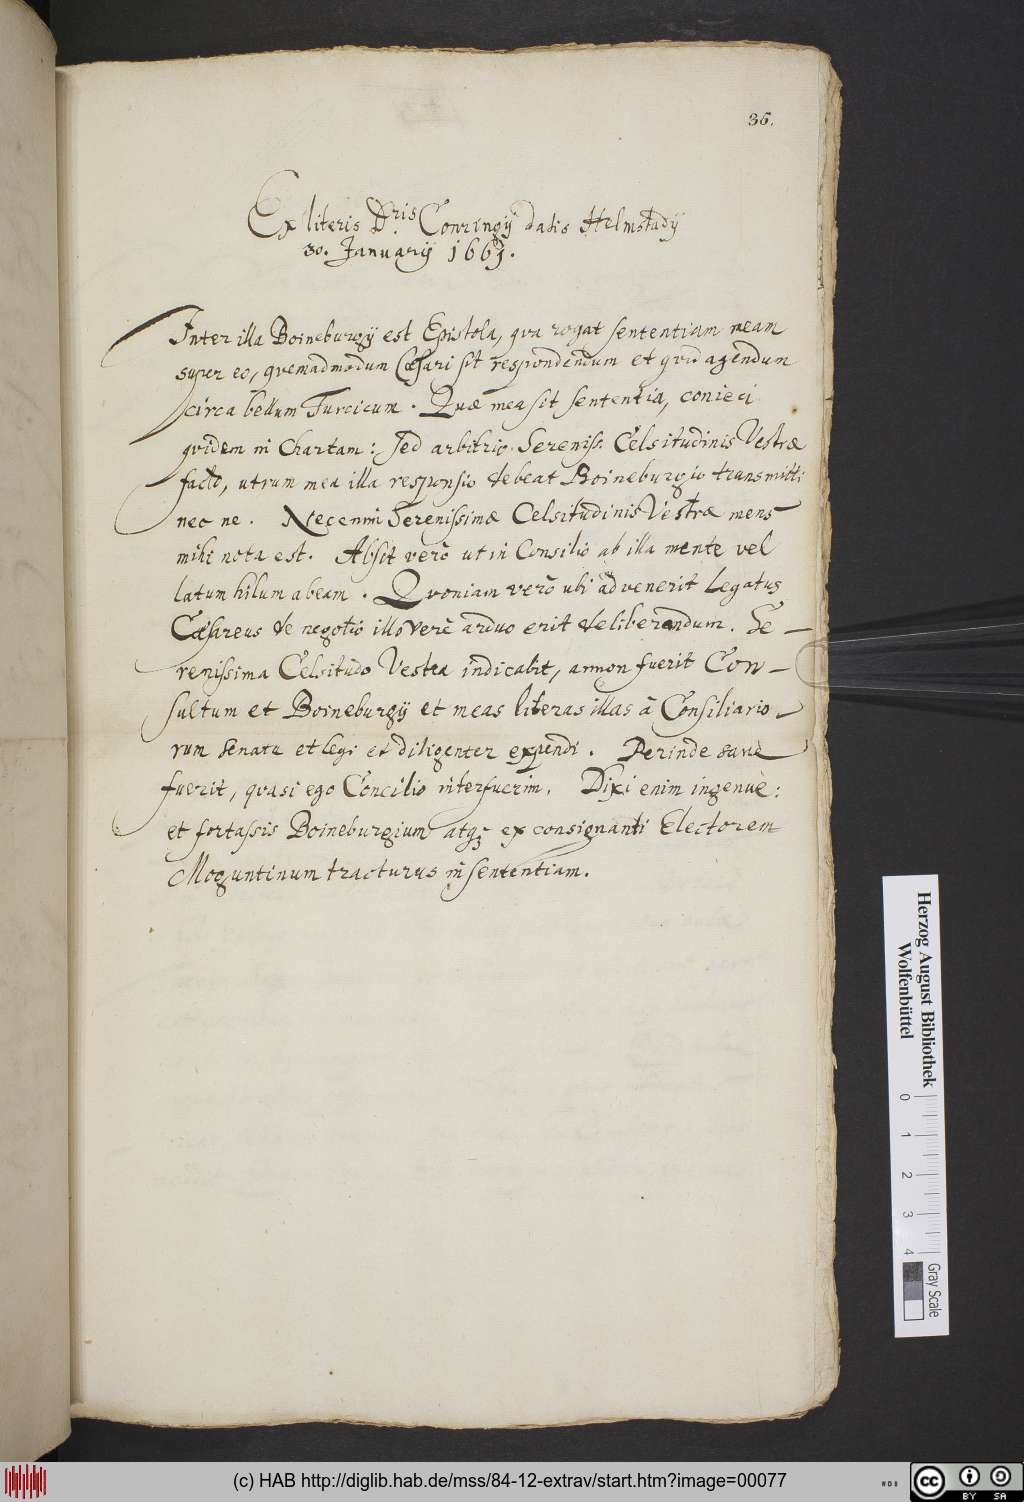 36.
Ex literis D.ris Conringij datis Helmstadij
30. Januarij 1661.
Inter illa Boineburgij est Epistola, qva rogat sententiam meam
super eo, qvemadmodum Cæsari sit respondendum et qvid agendum
circa bellum Turcicum. Quæ mea sit sententia, conieci
qvidem in Chartam: sed arbitrio Sereniss. Celsitudinis Vestræ
facto, utrum mea illa responsio debeat Boineburgio transmitti
nec ne. Nec enim Serenissimæ Celsitudinis Vestræ mens
mihi nota est. Absit verò ut in Consilio ab illa mente vel
latum hilum abeam. Qvoniam verò ubi advenerit Legatus
Cæsareus de negotio illo verè arduo erit deliberandum. Se-
renissima Celsitudo Vestra indicabit, annon fuerit Con-
sultum et Boineburgij et meas literas illas à Consiliario-
rum senatu et legi et diligenter expendi. Perinde sanè
fuerit, qvasi ego Concilio interfuerim. Dixi enim ingenuè:
et fortassis Boineburgium atq; ex consignanti Electorem
Moguntinum tracturus in sententiam.
Herzog August Bibliothek
Wolfenbüttel
0 1 2 3 4
Gray Scale
(c) HAB http://diglib.hab.de/mss/84-12-extrav/start.htm?image=00077
cc BY SA